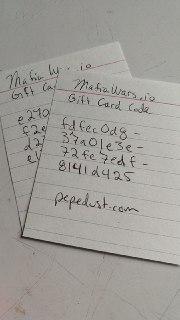 Mafia W
Gift Ca
e270
MafiaWars.io
Gift Card Code
fdfec0d8-
37a01e3e-
72fe7edf-
8141d425
pepedust.com